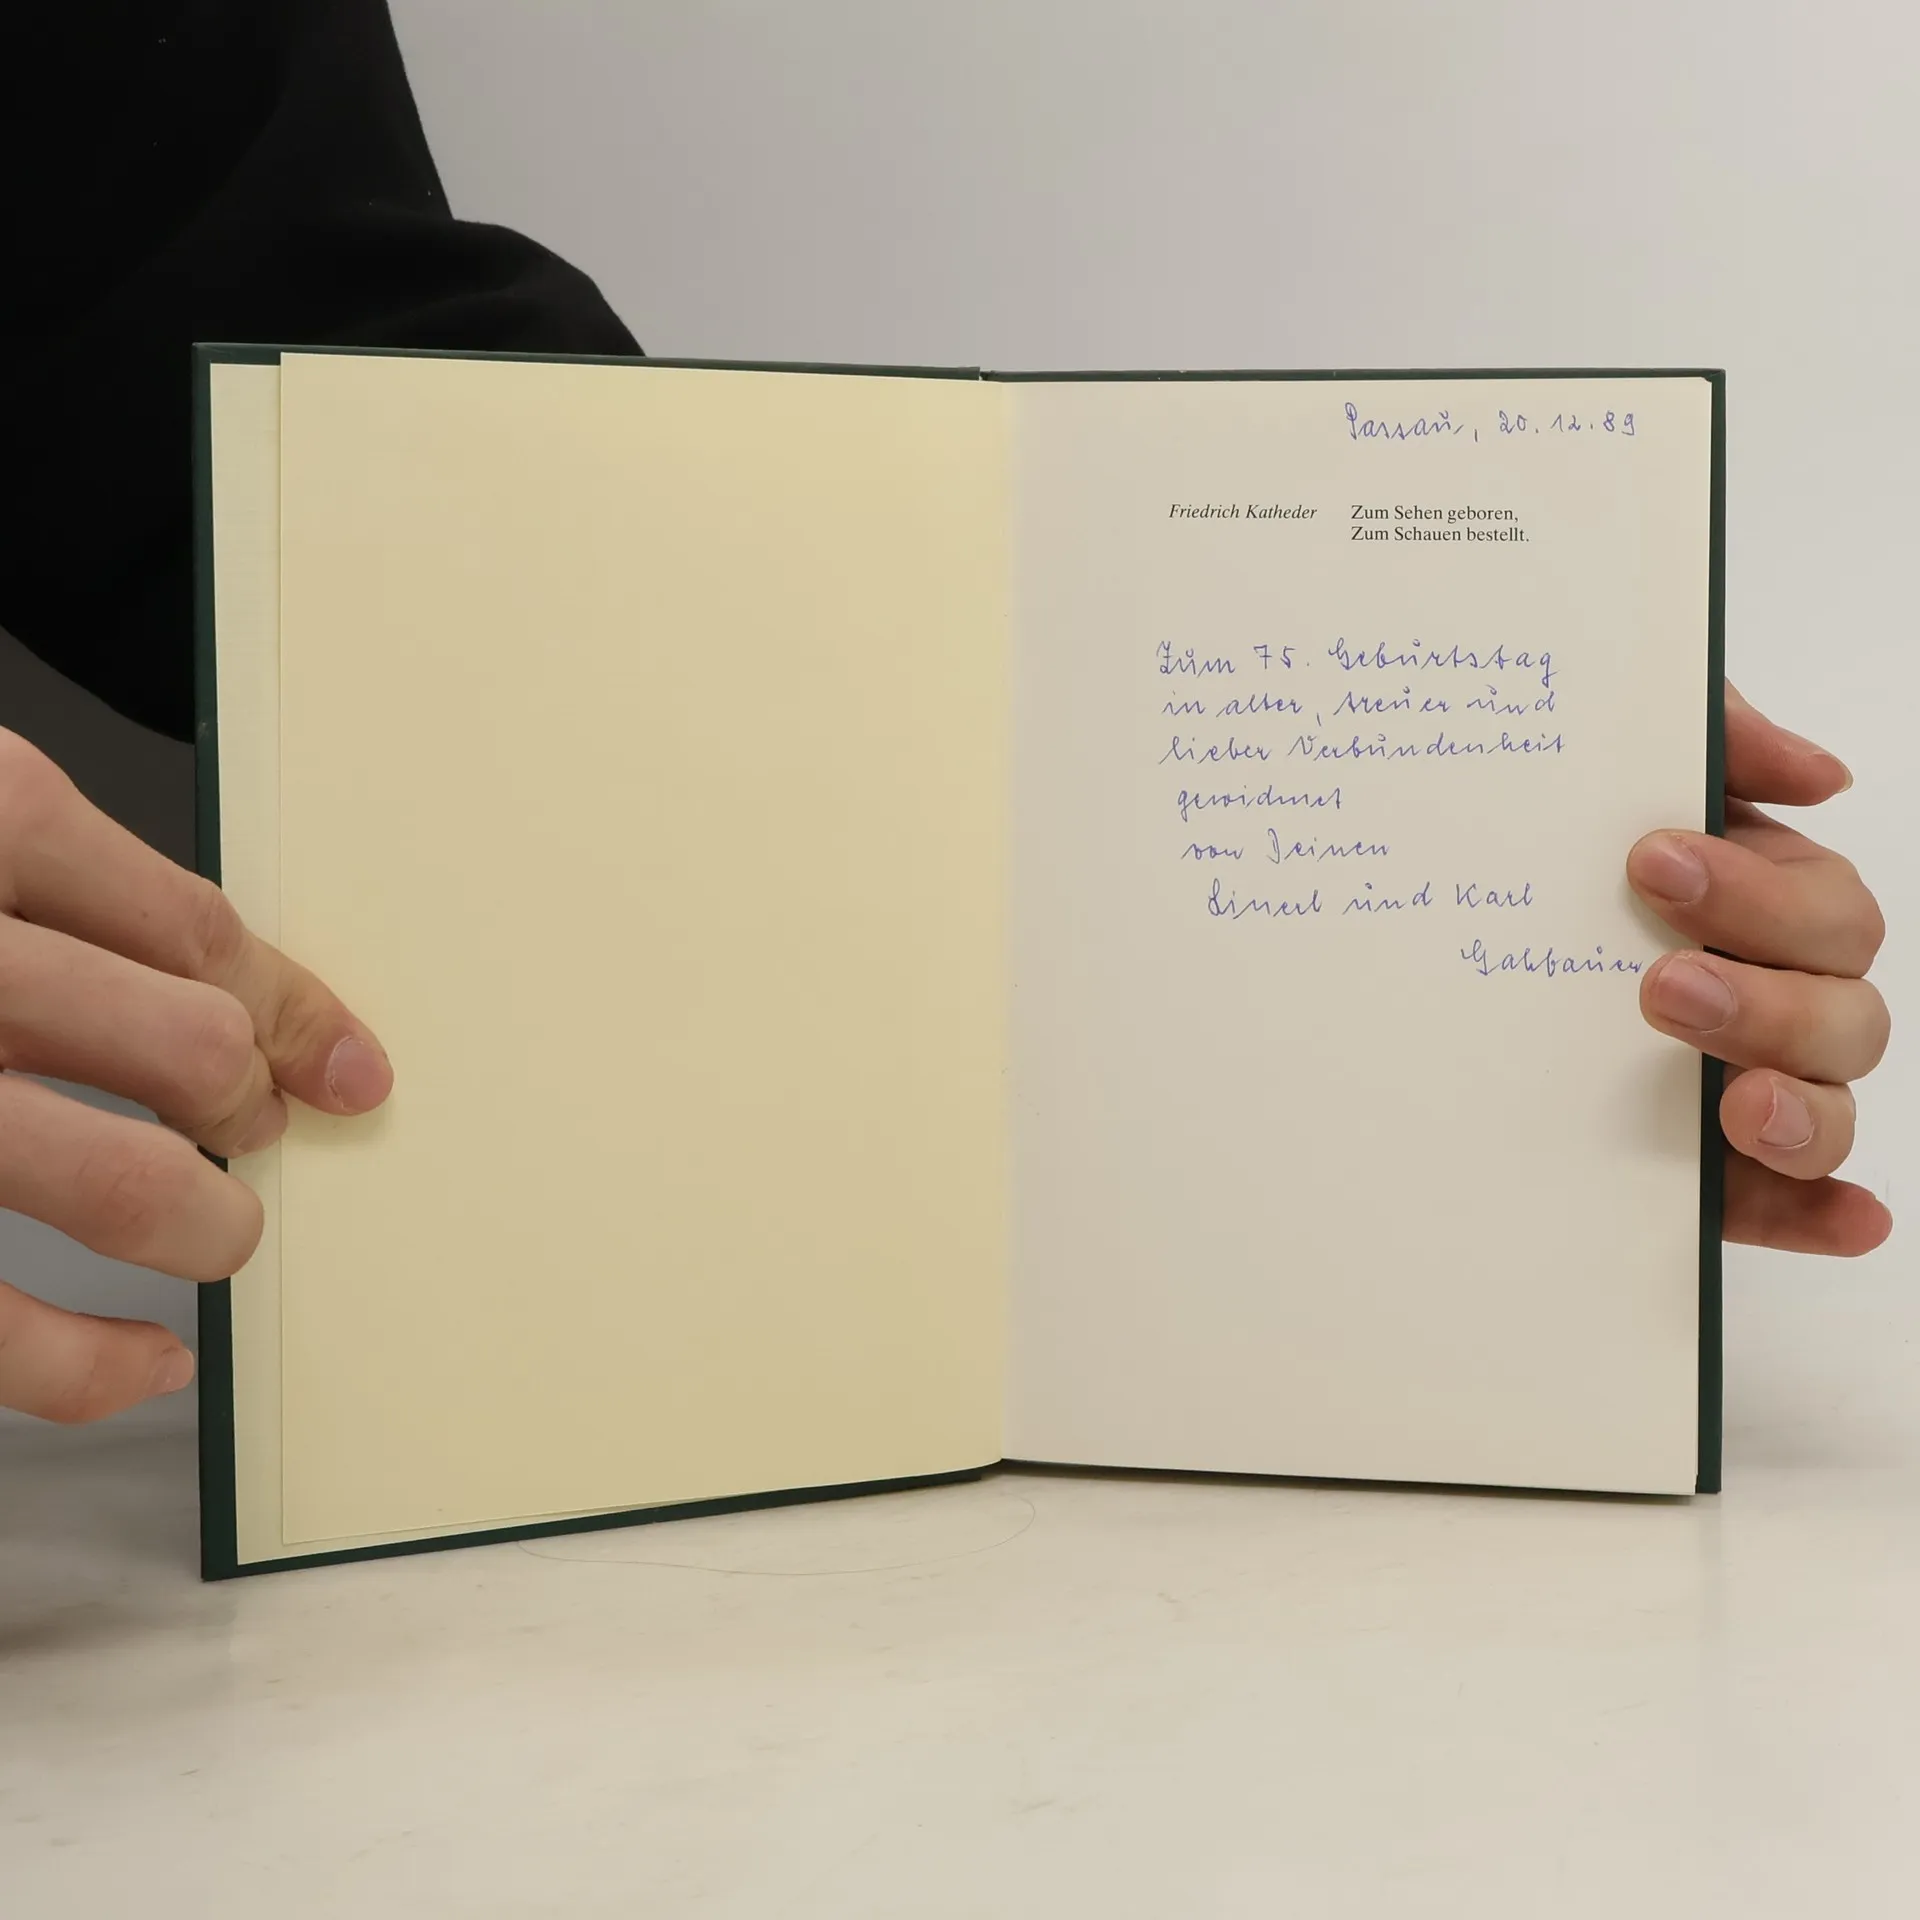 Passau, 20.12.89
Friedrich Katheder
Zum Sehen geboren,
Zum Schauen bestellt.
Zum 75. Geburtstag
in alter, treuer und
lieber Verbundenheit
gewidmet
von Deinen
Linerl und Karl
Gahbauer